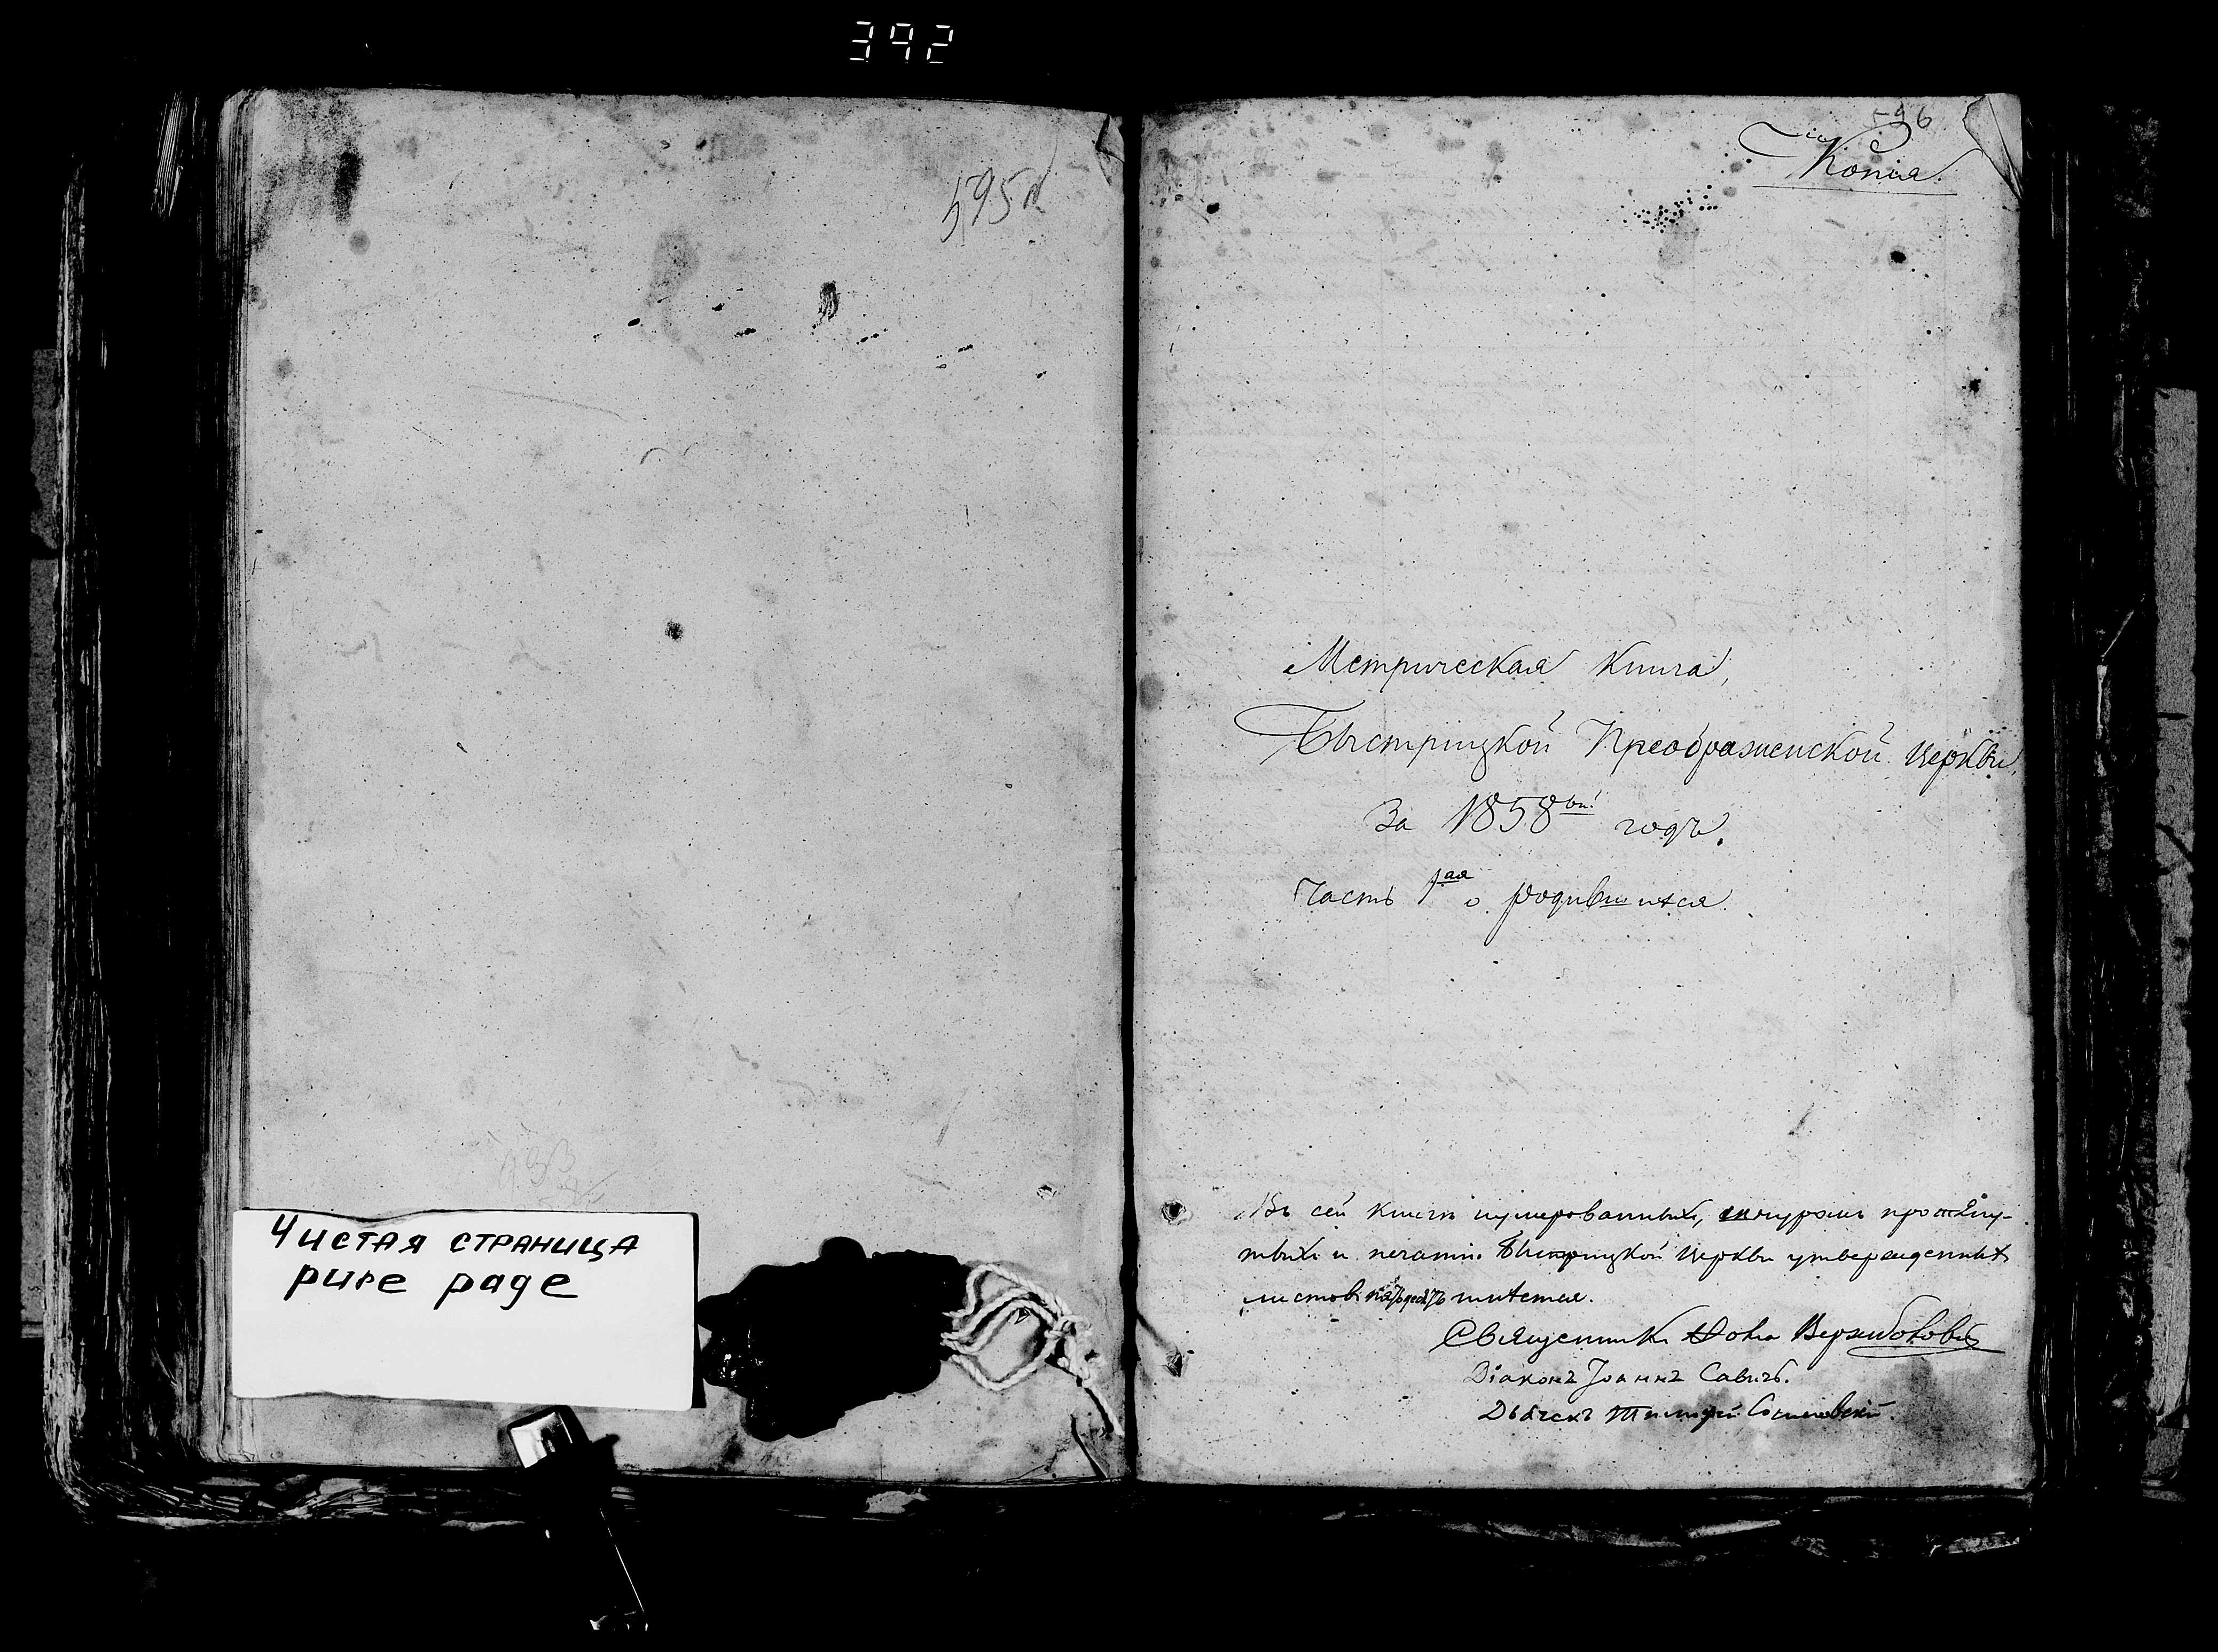 392
595
Чистая страница
pure page
596
Копия.
Метрическая книга,
Быстрицкой Преображенской Церкви,
За 1858ый годъ.
Часть 1ая о родившихся.
Въ сей книгѣ нумерованныхъ, шнуромъ протяну-
тыхъ и печатью Быстрицкой Церкви утвержденныхъ
листовъ числится.
Священникъ
Діаконъ Іоаннъ Савичъ.
Дьячекъ